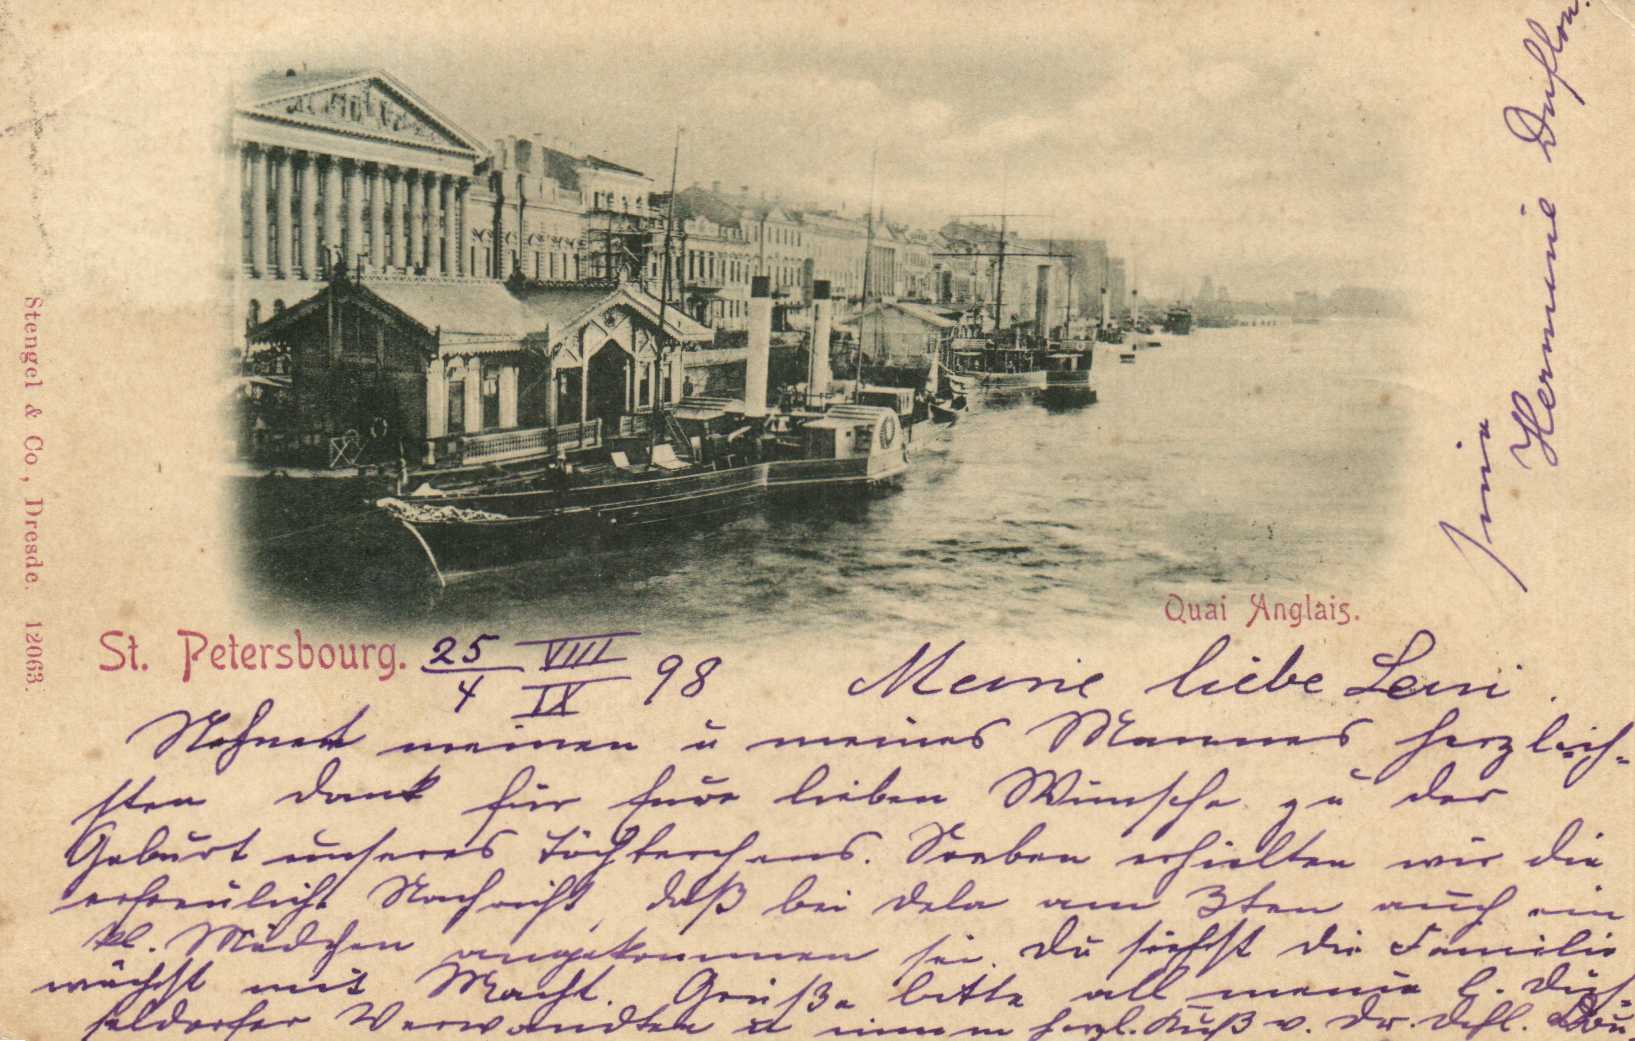 Stengel & Co, Dresde. 12063.
Quai Anglais.
St. Petersbourg. 25/4 VIII/IX 98 Meine liebe Leni.
Nehmet meinen u meines Mannes herzlich-
sten Dank für Eure lieben Wünsche zu der
Geburt unseres Töchterchens. Soeben erhielten wir die
erfreuliche Nachricht, daß bei Dela am 3ten auch ein
kl. Mädchen angekommen sei. Du siehst die Familie
wächst mit Macht. Grüße bitte all meine l. Düs-
seldorfer Verwandten u einen herzl. Kuß v.
Hermine Duflon.